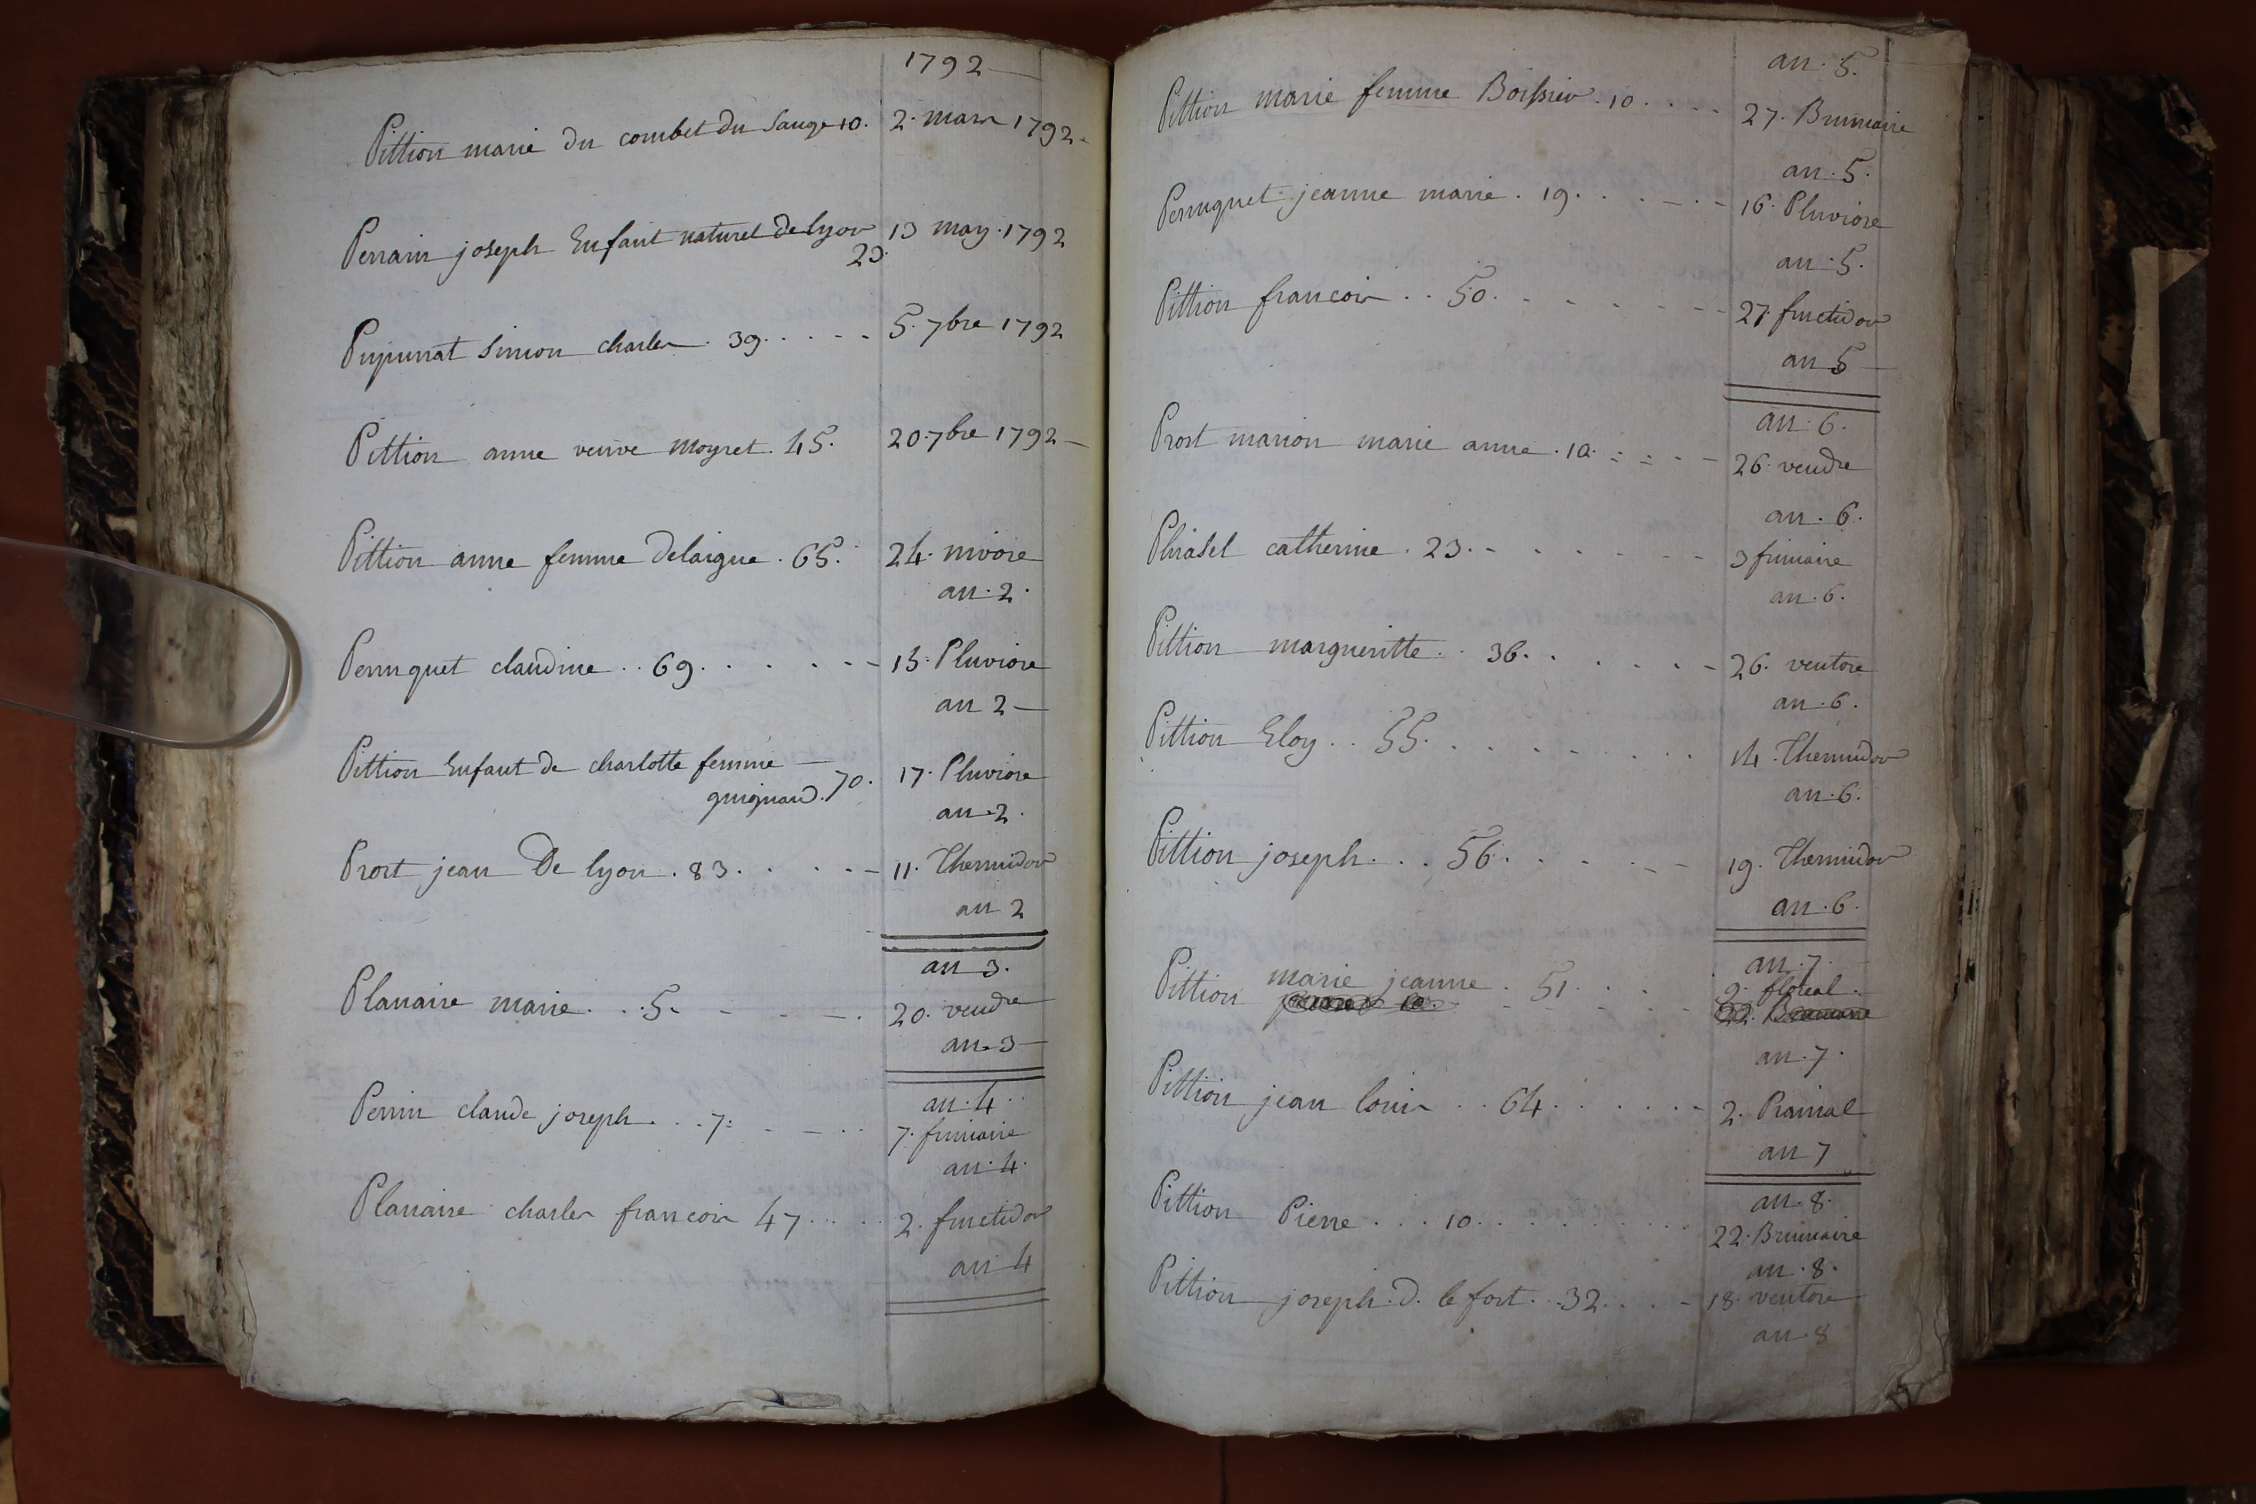 1792
Pittion marie du combet du Sauge 10. 2. mars 1792
Perrain joseph Enfant naturel de lyon 13 may. 1792
23.
Pupunat Simon charles. 39. 5. 7bre 1792
Pittion anne veuve moyret. 45. 20. 7bre 1792
Pittion anne femme Delaigue. 65. 24. nivose
an. 2.
Perruquet claudine. . 69. 15. Pluviose
an 2
Pittion Enfant de charlotte femme
guignard. 70. 17. Pluviose
an. 2.
Prost jean De lyon. 83. 11. Thermidor
an 2
an 3.
Planaire marie. . . 5. 20. vendre
an. 3
an. 4.
Perrin claude joseph. . . 7. 7. frimaire
an. 4.
Planaire charles francois 47. 2. fructidor
an 4
an. 5.
Pittion marie femme Boissieu. 10. 27. Brumaire
an. 5.
Perruquet jeanne marie. 19. 16. Pluviose
an. 5.
Pittion francois. . 50. 27. fructidor
an 5
an. 6.
Prost marion marie anne. 10. 26. vendre
an. 6.
Phrasel catherine. 23. 3 frimaire
an. 6.
Pittion margueritte. . 36. 26. ventose
an. 6.
Pittion Eloy. . 55. 14. Thermidor
an. 6.
Pittion joseph. . . 56. 19. Thermidor
an. 6.
an. 7.
marie jeanne. 51. 9. floreal.
Pittion 22. Brumaire
an. 7.
Pittion jean louis. . 64. 2. Prairial
an 7
an. 8.
Pittion Pierre. . . 10. 22. Brumaire
an. 8.
Pittion joseph. d. le fort. . 32. 18. ventose
an. 8